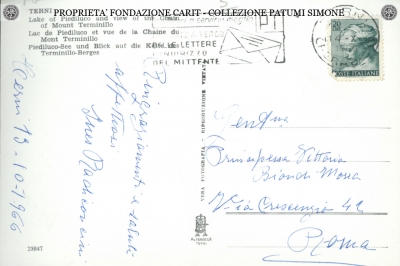 PROPRIETA' FONDAZIONE CARIT - COLLEZIONE PATUMI SIMONE
TERNI
Lake of Piediluco and view of the Chain
of Mount Terminillo
Lac de Piediluco et vue de la Chaine du
Mont Terminillo
Piediluco-See und Blick auf die Kette des
Terminillo-Berges
DELLE LETTERE
INDIRIZZO
DEL MITTENTE
POSTE ITALIANE
Terni 13-10-1966
Ringraziamenti e saluti
affettuosi
Ines
VERA FOTOGRAFIA - RIPRODUZIONE VIETATA
Gent.ma
Principessa Vittoria
Bianchi
Via Crescenzio 42
Roma
23847
ALTEROCCA
TERNI